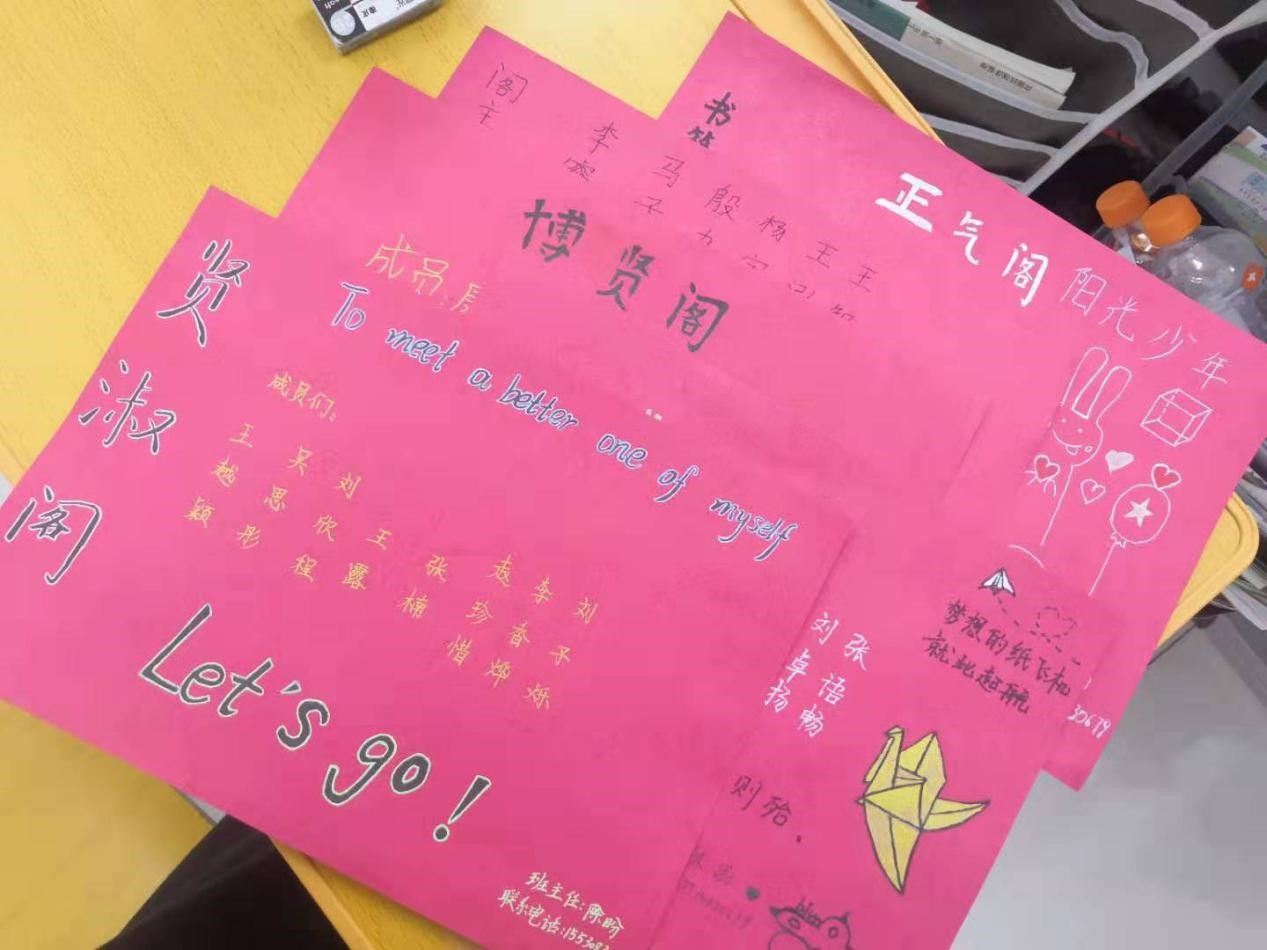 贤淑阁
To meet a better one of myself
成员们:
王越颖
吴思彤
刘欣程
王露
张楠
赵珍惜
李春烨
刘子烁
Let's go!
班主任:陈昐
联系电话:15530
博贤阁
成员:
刘卓扬
张语畅
则殆.
阁主
李
马子
殷力
杨
王
王
书
正气阁
阳光少年
梦想的纸飞机
就此起航
30679